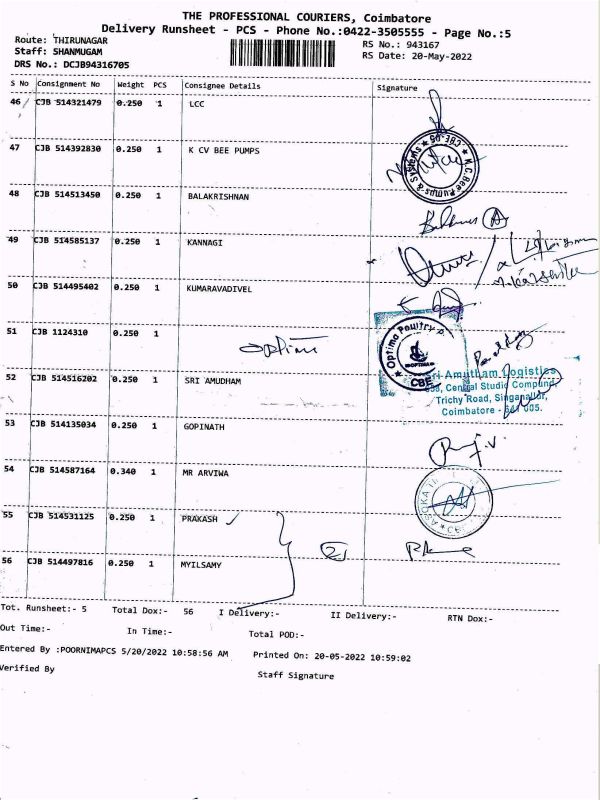 THE PROFESSIONAL COURIERS, Coimbatore
Delivery Runsheet - PCS - Phone No.:0422-3505555 - Page No.:5
Route: THIRUNAGAR
Staff: SHANMUGAM
DRS No.: DCJB94316705
RS No.: 943167
RS Date: 20-May-2022
S No Consignment No Weight PCS Consignee Details Signature
46 CJB 514321479 0.250 1 LCC
47 CJB 514392830 0.250 1 K CV BEE PUMPS
K.C.Bee Pumps & Systems ★ CBE-05 ★
48 CJB 514513450 0.250 1 BALAKRISHNAN
49 CJB 514585137 0.250 1 KANNAGI
50 CJB 514495402 0.250 1 KUMARAVADIVEL
51 CJB 1124310 0.250 1 optima
Optima Poultry
OPTIMA
★ CBE
52 CJB 514516202 0.250 1 SRI AMUDHAM
Sri Amutham Logistics
Central Studio Compund,
Trichy Road, Singanallur,
Coimbatore - 641 005.
53 CJB 514135034 0.250 1 GOPINATH
54 CJB 514587164 0.340 1 MR ARVIWA
ASOKA
55 CJB 514531125 0.250 1 PRAKASH ✓
56 CJB 514497816 0.250 1 MYILSAMY
Tot. Runsheet:- 5 Total Dox:- 56 I Delivery:- II Delivery:- RTN Dox:-
Out Time:- In Time:- Total POD:-
Entered By :POORNIMAPCS 5/20/2022 10:58:56 AM Printed On: 20-05-2022 10:59:02
Verified By Staff Signature